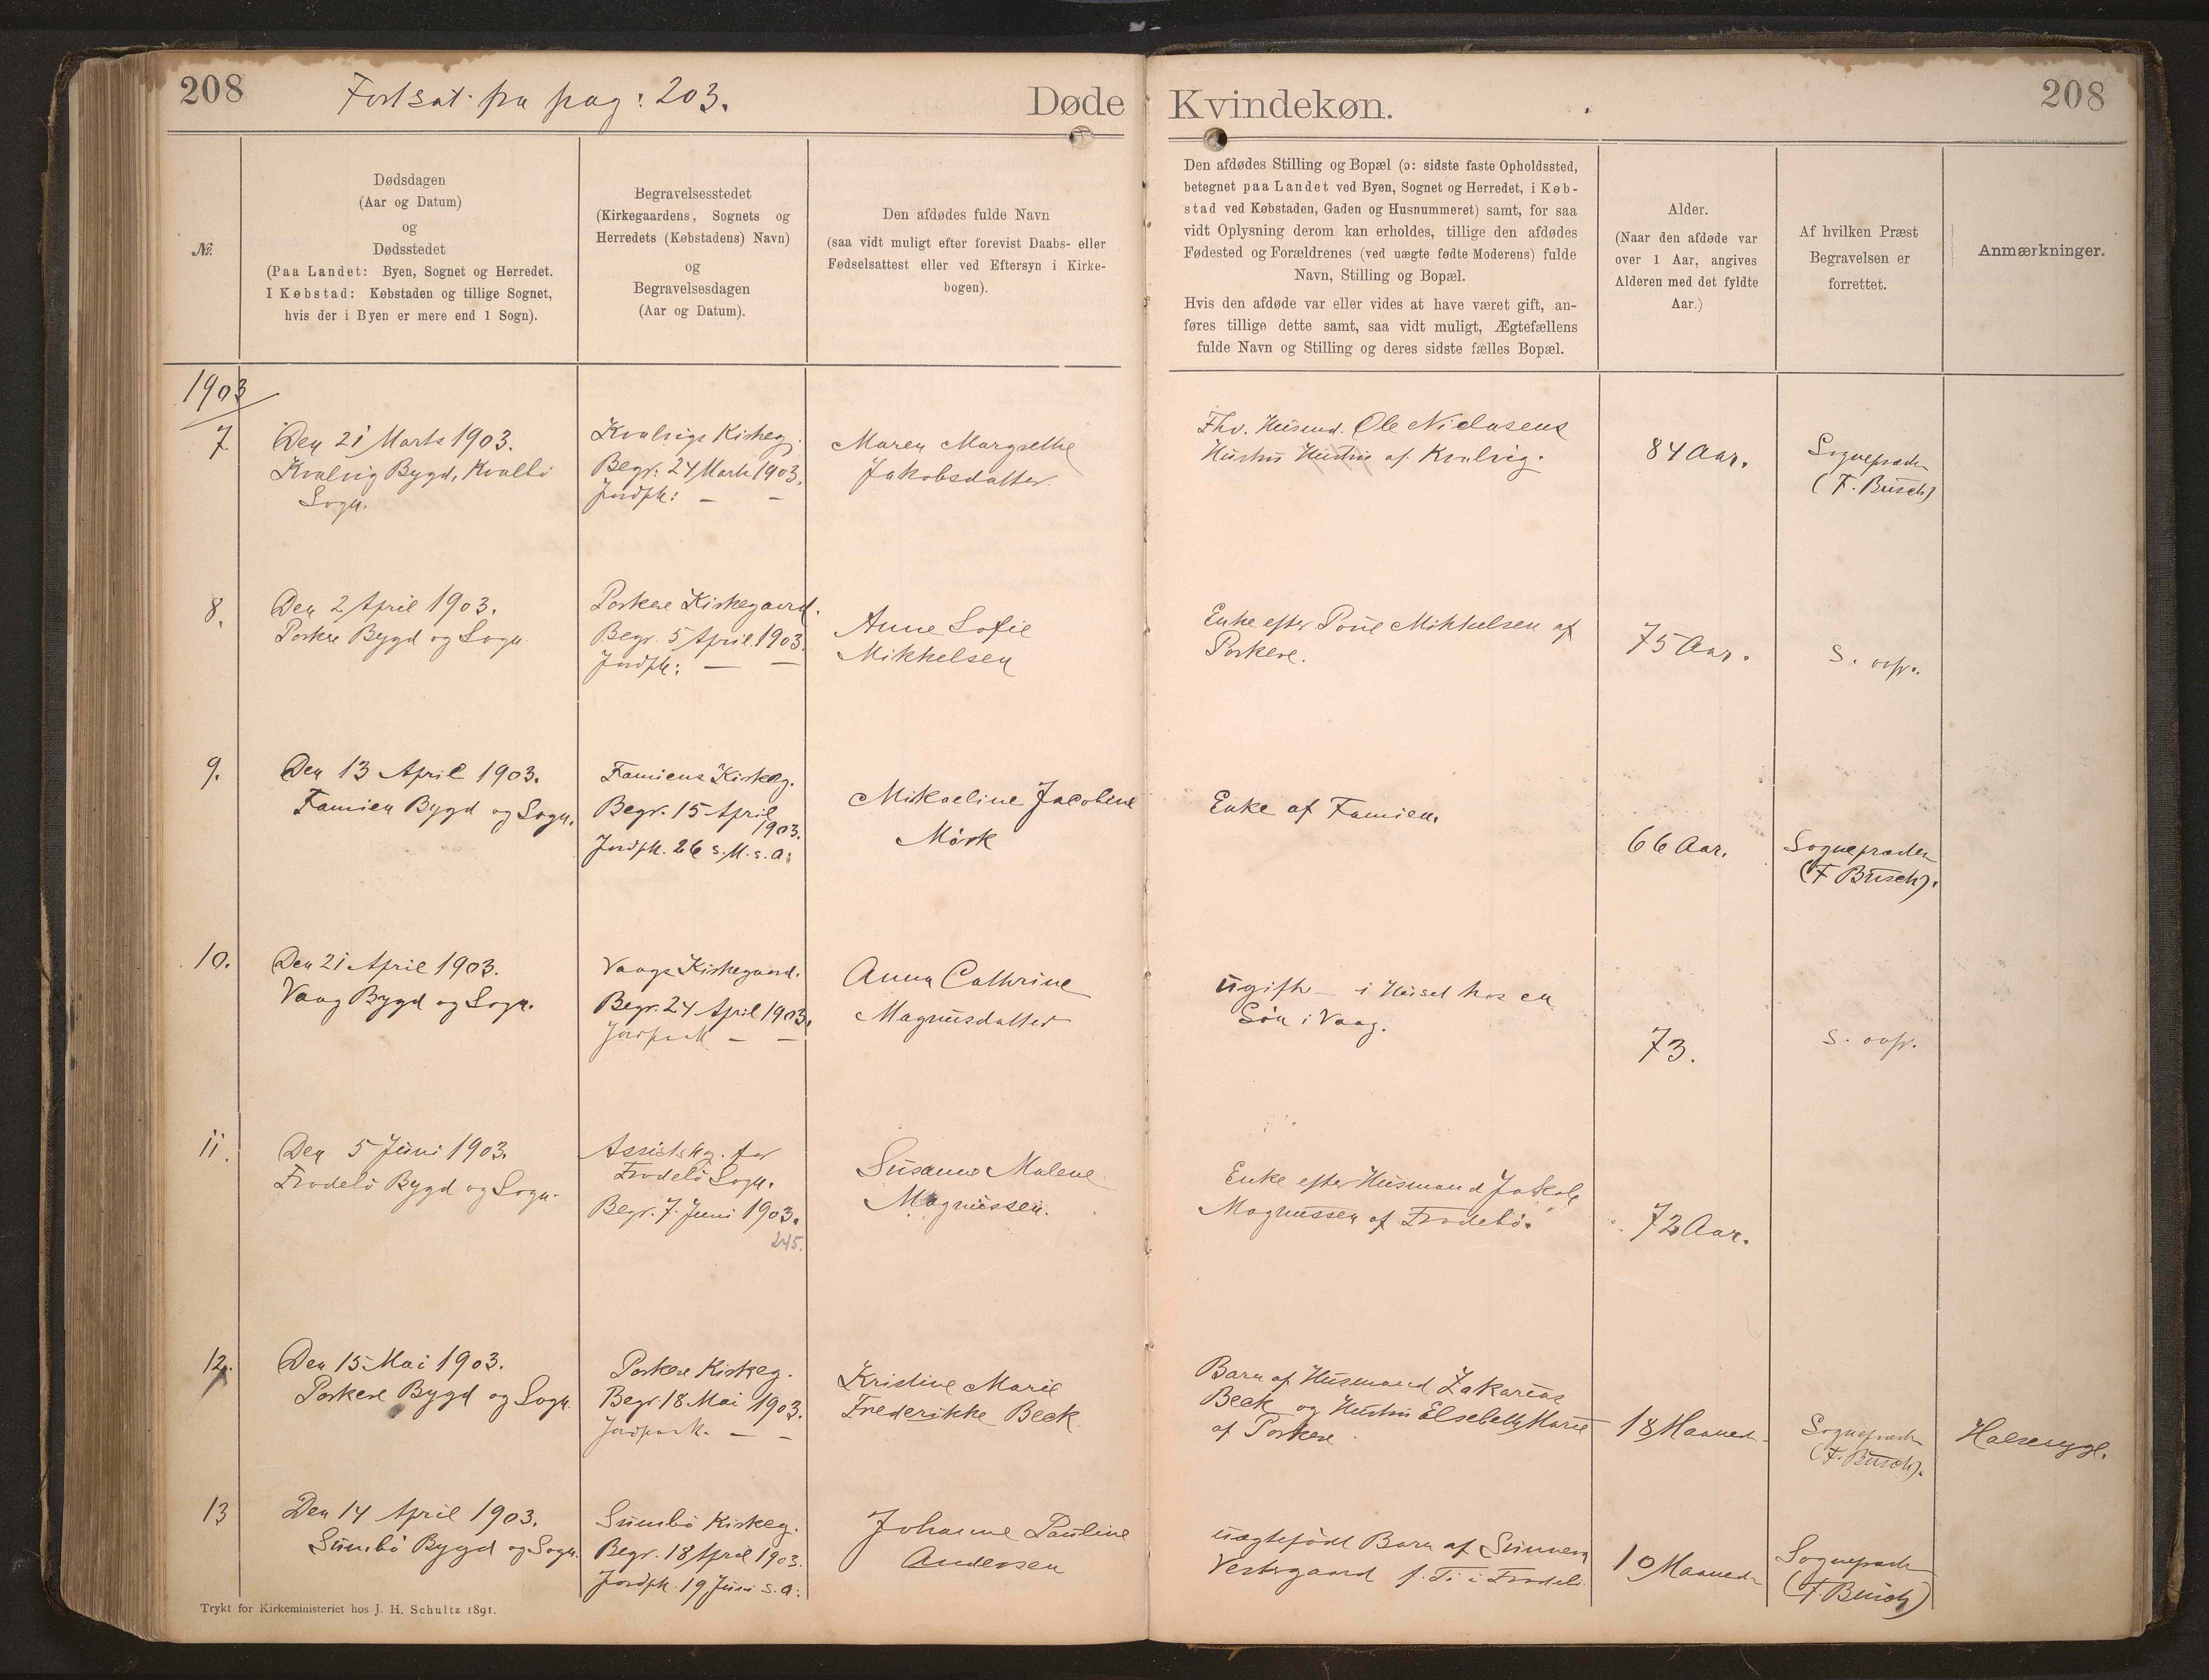 208
Fortsat fra pag: 203.
Døde
Kvindekøn.
208
№.
Dødsdagen
(Aar og Datum)
og
Dødsstedet
(Paa Landet: Byen, Sognet og Herredet.
I Købstad: Købstaden og tillige Sognet,
hvis der i Byen er mere end 1 Sogn).
Begravelsesstedet
(Kirkegaardens, Sognets og
Herredets (Købstadens) Navn)
og
Begravelsesdagen
(Aar og Datum).
Den afdødes fulde Navn
(saa vidt muligt efter forevist Daabs- eller
Fødselsattest eller ved Eftersyn i Kirke-
bogen).
Den afdødes Stilling og Bopæl (ɔ: sidste faste Opholdssted,
betegnet paa Landet ved Byen, Sognet og Herredet, i Køb-
stad ved Købstaden, Gaden og Husnummeret) samt, for saa
vidt Oplysning derom kan erholdes, tillige den afdødes
Fødested og Forældrenes (ved uægte fødte Moderens) fulde
Navn, Stilling og Bopæl.
Hvis den afdøde var eller vides at have været gift, an-
føres tillige dette samt, saa vidt muligt, Ægtefællens
fulde Navn og Stilling og deres sidste fælles Bopæl.
Alder.
(Naar den afdøde var
over 1 Aar, angives
Alderen med det fyldte
Aar.)
Af hvilken Præst
Begravelsen er
forrettet.
Anmærkninger.
1903
7
Den 21 Marts 1903.
Kvalvig Bygd, Kvalbö
Sogn.
Kvalvigs Kirkeg.
Begr. 24 Marts 1903.
Jordpk: — —
Maren Margrethe
Jakobsdatter
Fhv. Husmd. Ole Niclasens
Hustru Hustru af Kvalvig.
84 Aar.
Sognepræsten
(F. Busch)
8.
Den 2 April 1903.
Porkere Bygd og Sogn
Porkere Kirkegaard.
Begr. 5 April 1903.
Jordpk: — —
Anne Sofie
Mikkelsen
Enke efter Poul Mikkelsen af
Porkere.
75 Aar.
S. ovfr.
9.
Den 13 April 1903.
Famien Bygd og Sogn.
Famiens Kirkeg.
Begr. 15 April
1903.
Jordpk. 26 s. M. s. A:
Mikaeline Jacobine
Mörk
Enke af Famien.
66 Aar.
Sognepræsten
(F Busch).
10.
Den 21 April 1903.
Vaag Bygd og Sogn.
Vaags Kirkegaard.
Begr. 24 April 1903.
Jordpaak — —
Anna Cathrine
Magnusdatter
ugift — i Huset hos en
Sön i Vaag.
73.
S. ovfr.
11.
Den 5 Juni 1903.
Frodebö Bygd og Sogn.
Assistkg. for
Frodebö Sogn.
Begr. 7. Juni 1903.
245.
Susanne Malene
Magnussen.
Enke efter Husmand Jakob
Magnussen af Frodebö.
72 Aar.
12.
Den 15 Mai 1903.
Porkere Bygd og Sogn
Porkere Kirkeg.
Begr 18 Mai 1903.
Jordpaak. — —
Kristine Marie
Frederikke Beck
Barn af Husmand Zakarias
Beck og Hustru Elsebeth Marie
af Porkere
18 Maaneder
Sognepræsten
(F. Busch).
Halssygd.
13
Den 14 April 1903.
Sumbö Bygd og Sogn.
Sumbö Kirkeg.
Begr. 18 April 1903.
Jordpk. 19 Juni s. A:
Johanne Pauline
Andersen
uægtefödt Barn af Sunneva
Vestergaard f. Ti i Frodebö
10 Maaneder
Sognepræsten
(F. Busch)
Trykt for Kirkeministeriet hos J. H. Schultz 1891.